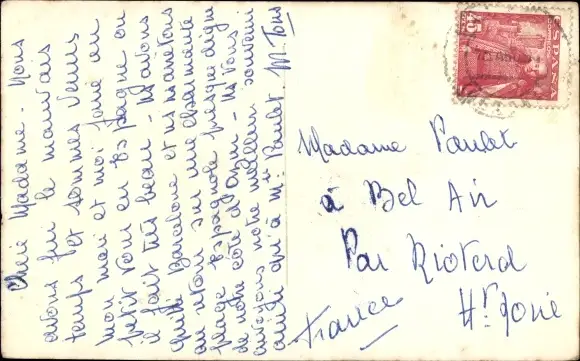 Chère Madame - Nous
avons fui le mauvais
temps et sommes venus
mon mari et moi faire un
petit tour en Espagne ou
il fait très beau - Ns avons
quitté Barcelone et ns arrêtons
ns sur une charmante
plage Espagnole presque digne
de notre côte d'Azur - Ns vous
envoyons notre meilleur souvenir
ainsi qu'à Mr Paulet M. Tous
Madame Paulet
à Bel Air
Par Riotord
Hte Loire
France
45
CTS
CORREOS
ESPAÑA